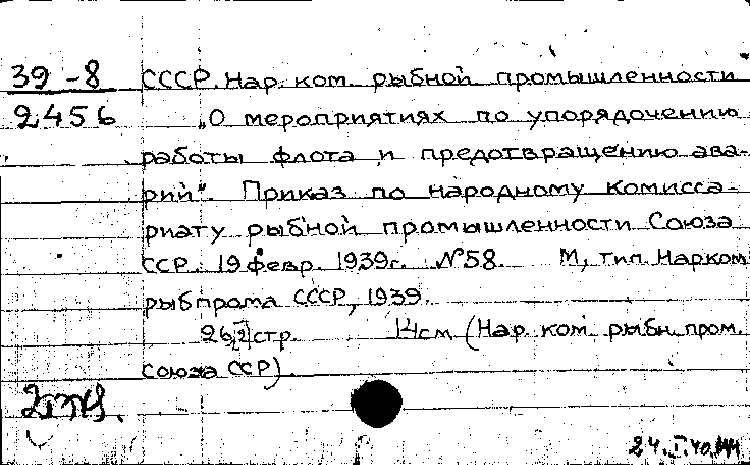 39-8 СССР. Нар. ком. рыбной промышленности
2456 „О мероприятиях по упорядочению
работы флота и предотвращению ава-
рий". Приказ по народному комисса-
риату рыбной промышленности Союза
ССР. 19 февр. 1939г. №58. М, тип. Нарком
рыбпрома СССР, 1939.
26,[2] стр. 14см. (Нар. ком. рыбн. пром.
союза ССР).
24.I.40